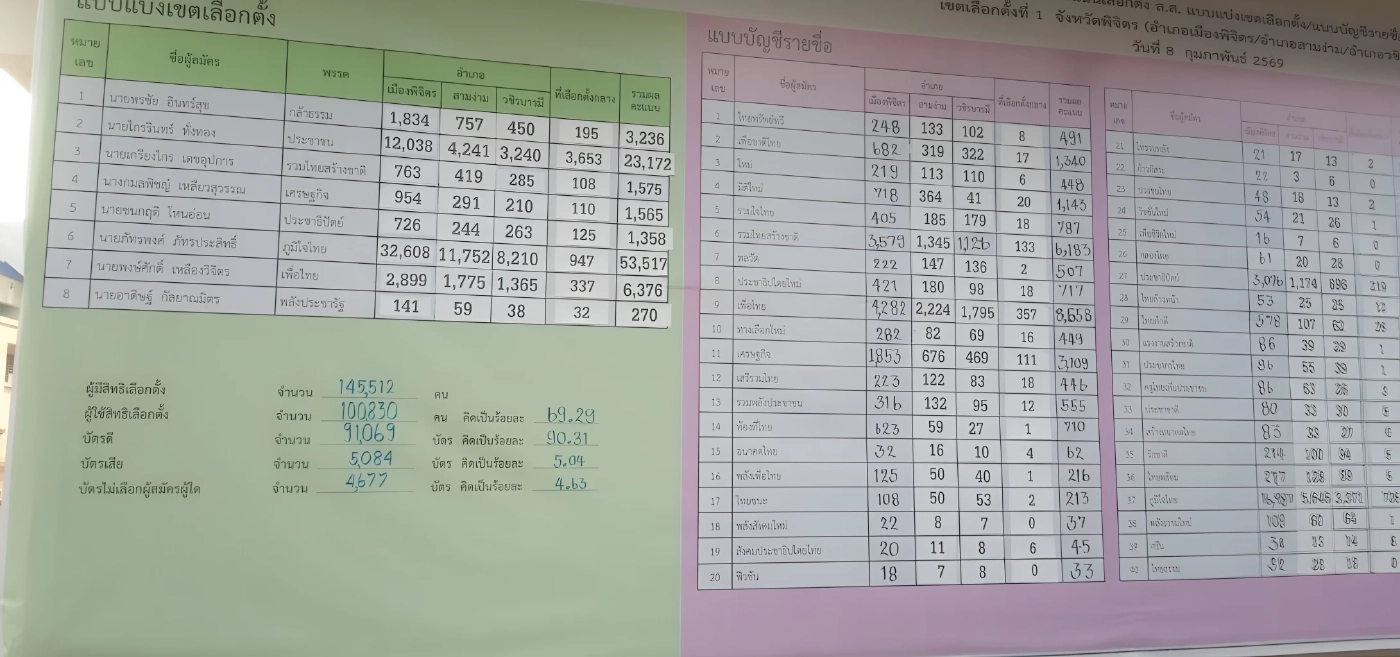 แบบแบ่งเขตเลือกตั้ง
หมายเลข ชื่อผู้สมัคร พรรค อำเภอ ที่เลือกตั้งกลาง รวมผลคะแนน
เมืองพิจิตร สามง่าม วชิรบารมี
1 นายพรชัย อินทร์สุข กล้าธรรม 1,834 757 450 195 3,236
2 นายไกรรินทร์ ทั่งทอง ประชาชน 12,038 4,241 3,240 3,653 23,172
3 นายเกรียงไกร เดชอุปการ รวมไทยสร้างชาติ 763 419 285 108 1,575
4 นางกมลพิชญ์ เหลียวสุวรรณ เศรษฐกิจ 954 291 210 110 1,565
5 นายชนกฤติ โหนอ่อน ประชาธิปัตย์ 726 244 263 125 1,358
6 นายภัทรพงศ์ ภัทรประสิทธิ์ ภูมิใจไทย 32,608 11,752 8,210 947 53,517
7 นายพงษ์ศักดิ์ เหลืองวิจิตร เพื่อไทย 2,899 1,775 1,365 337 6,376
8 นายอาดิษฐ์ กัลยาณมิตร พลังประชารัฐ 141 59 38 32 270
ผู้มีสิทธิเลือกตั้ง จำนวน 145,512 คน
ผู้ใช้สิทธิเลือกตั้ง จำนวน 100,830 คน คิดเป็นร้อยละ 69.29
บัตรดี จำนวน 91,069 บัตร คิดเป็นร้อยละ 90.31
บัตรเสีย จำนวน 5,084 บัตร คิดเป็นร้อยละ 5.04
บัตรไม่เลือกผู้สมัครผู้ใด จำนวน 4,677 บัตร คิดเป็นร้อยละ 4.63
ส.ส. แบบแบ่งเขตเลือกตั้ง/แบบบัญชีรายชื่อ
เขตเลือกตั้งที่ 1 จังหวัดพิจิตร (อำเภอเมืองพิจิตร/อำเภอสามง่าม/อำเภอวชิ
วันที่ 8 กุมภาพันธ์ 2569
แบบบัญชีรายชื่อ
หมายเลข ชื่อผู้สมัคร อำเภอ ที่เลือกตั้งกลาง รวมผลคะแนน
เมืองพิจิตร สามง่าม วชิรบารมี
1 ไทยทรัพย์ทวี 248 133 102 8 491
2 เพื่อชาติไทย 682 319 322 17 1,340
3 ใหม่ 219 113 110 6 448
4 มิติใหม่ 718 364 41 20 1,143
5 รวมใจไทย 405 185 179 18 787
6 รวมไทยสร้างชาติ 3,579 1,345 1,126 133 6,183
7 พลวัต 222 147 136 2 507
8 ประชาธิปไตยใหม่ 421 180 98 18 717
9 เพื่อไทย 4,282 2,224 1,795 357 8,658
10 ทางเลือกใหม่ 282 82 69 16 449
11 เศรษฐกิจ 1853 676 469 111 3,109
12 เสรีรวมไทย 223 122 83 18 446
13 รวมพลังประชาชน 316 132 95 12 555
14 ท้องที่ไทย 623 59 27 1 710
15 อนาคตไทย 32 16 10 4 62
16 พลังเพื่อไทย 125 50 40 1 216
17 ไทยชนะ 108 50 53 2 213
18 พลังสังคมใหม่ 22 8 7 0 37
19 สังคมประชาธิปไตยไทย 20 11 8 6 45
20 ฟิวชัน 18 7 8 0 33
หมายเลข ชื่อผู้สมัคร อำเภอ
21 ไทรวมพลัง 21 17 13 2
22 ก้าวอิสระ 22 3 6 0
23 ปวงชนไทย 48 18 13 2
24 วิชชั่นใหม่ 54 21 26 1
25 เพื่อชีวิตใหม่ 16 7 6 0
26 คลองไทย 61 20 23 0
27 ประชาธิปัตย์ 3,076 1,174 896 219
28 ไทยก้าวหน้า 53 25 25
29 ไทยภักดี 578 107 62
30 แรงงานสร้างชาติ 86 39 39 1
31 ประชากรไทย 96 55 39
32 ครูไทยเพื่อประชาชน 86 63
33 ประชาชาติ 80 33 30
34 สร้างอนาคตไทย 83 33
35 รักชาติ 94
36 ไทยพร้อม
37 ภูมิใจไทย 5,646
38 พลังธรรมใหม่ 60 64
39 กรีน 13 14
40 ไทยธรรม